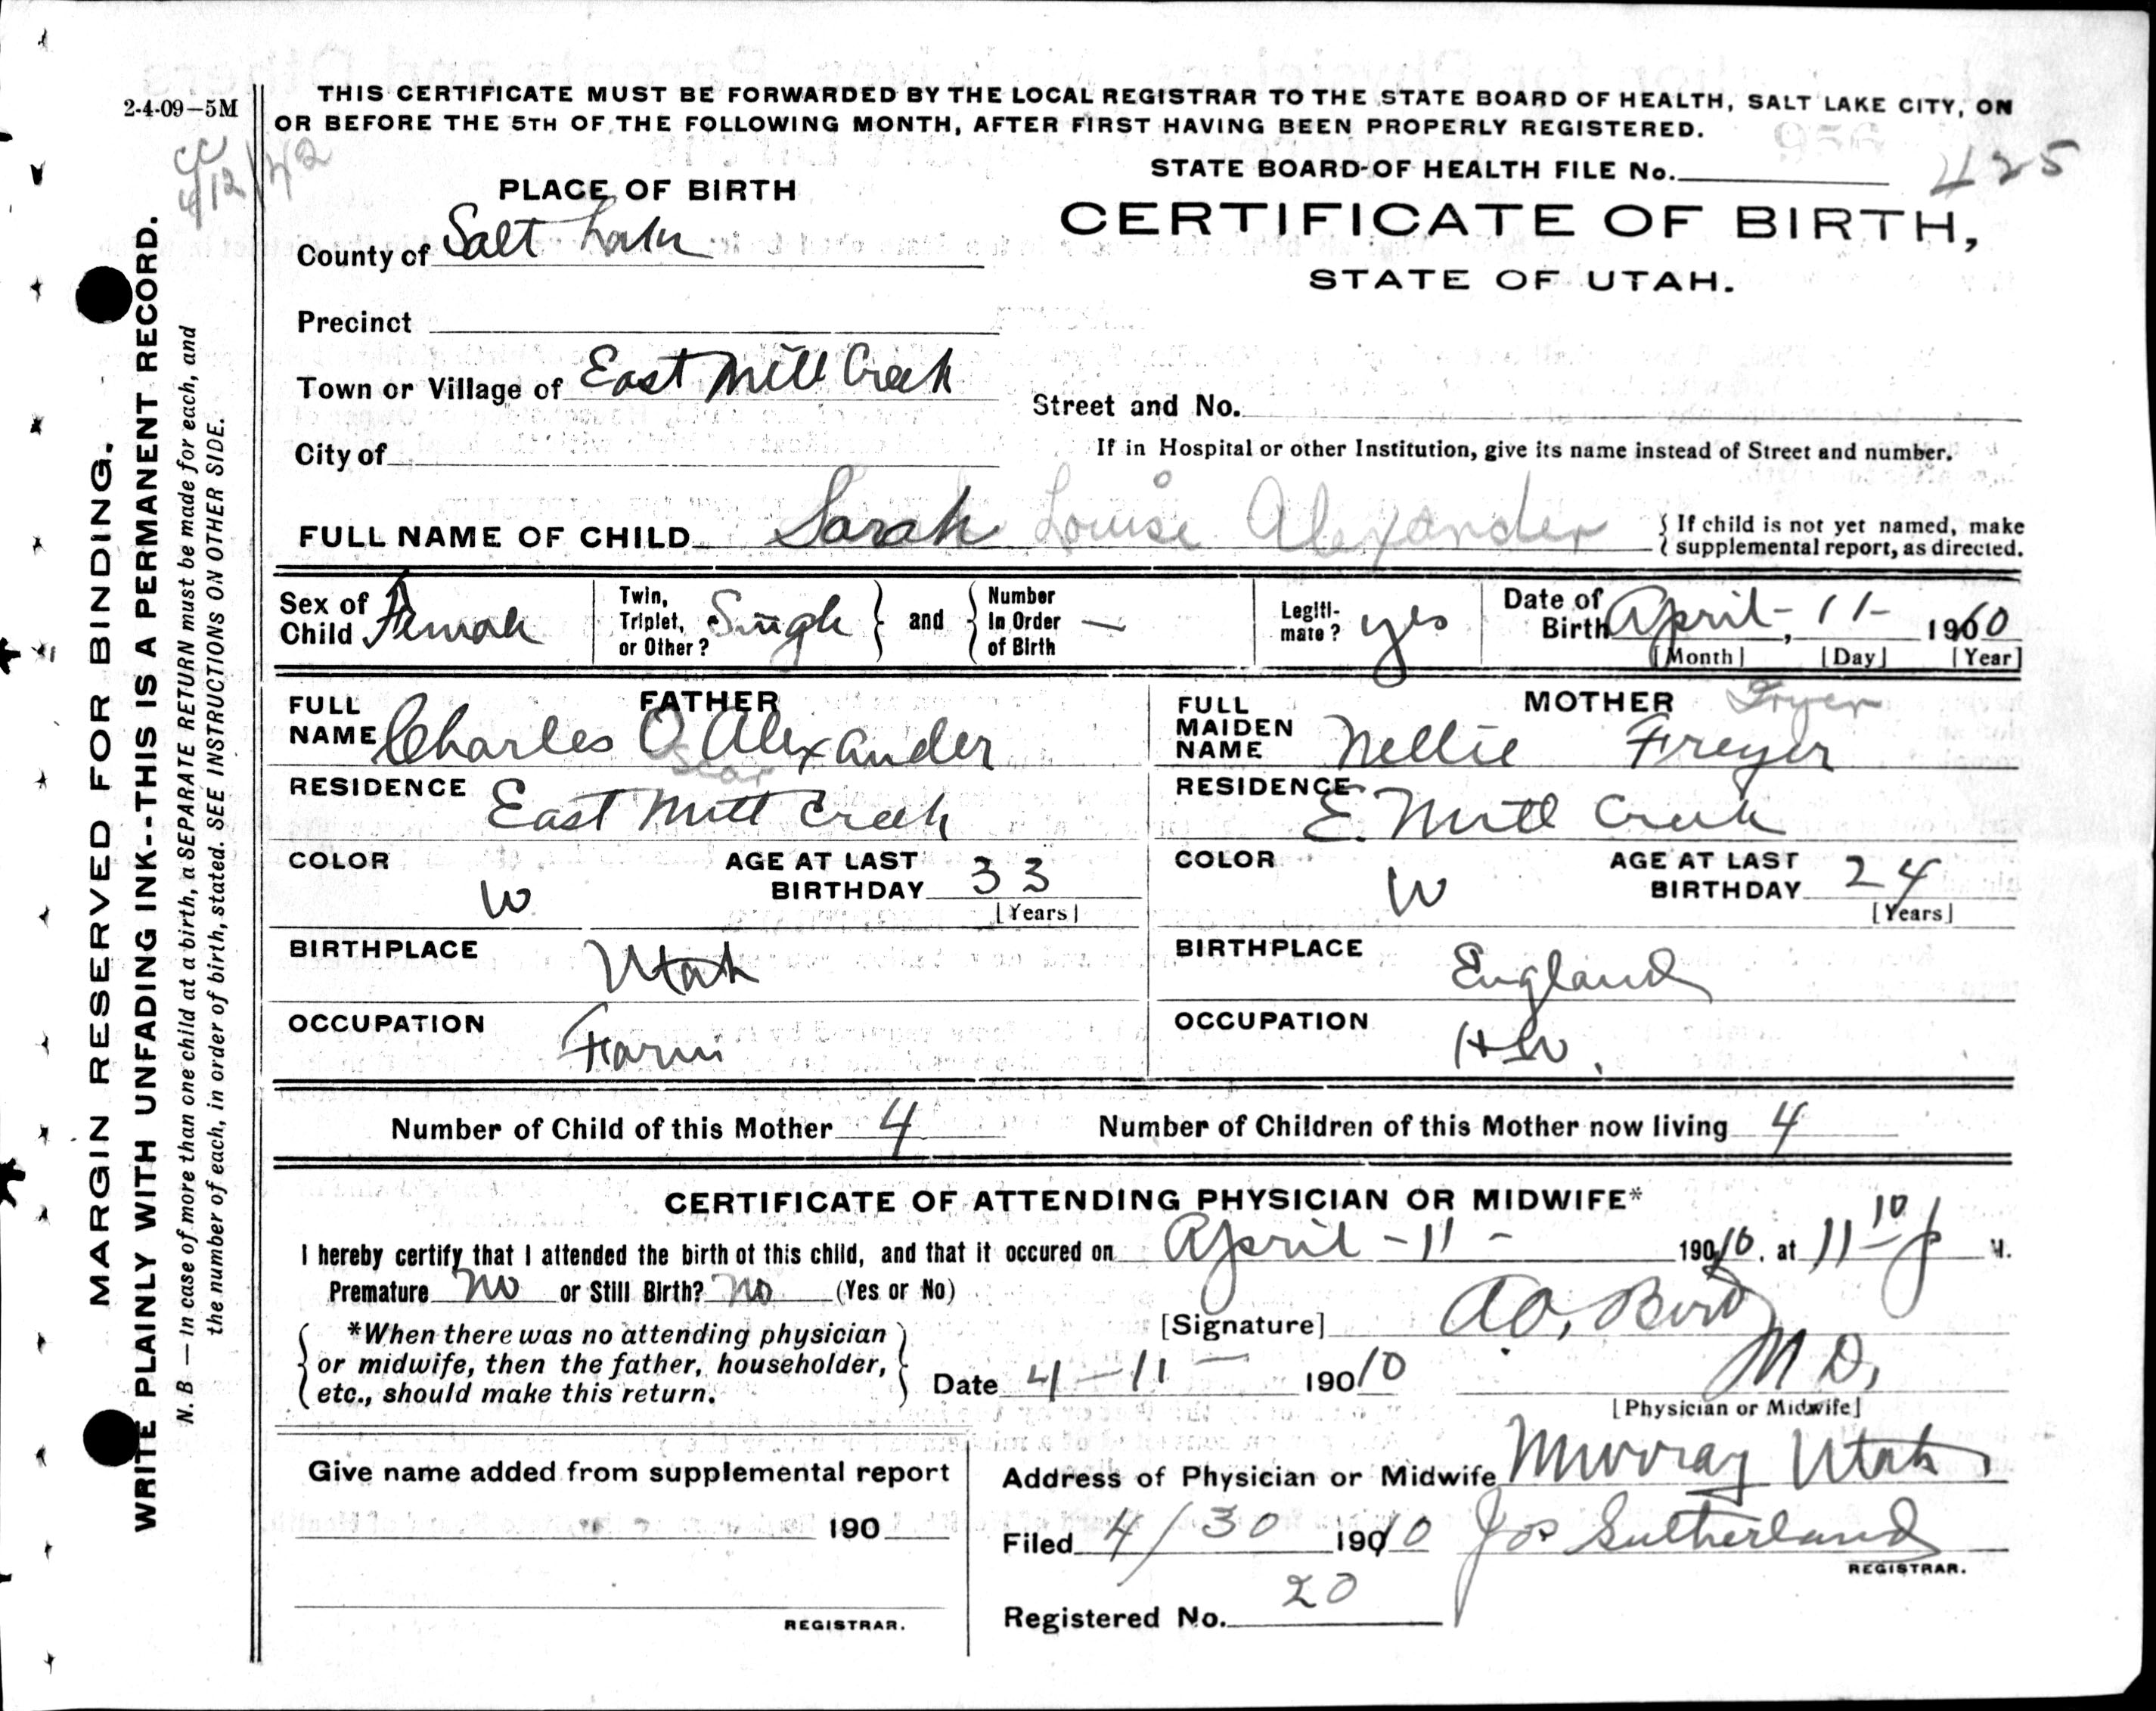 2-4-09—5M
THIS CERTIFICATE MUST BE FORWARDED BY THE LOCAL REGISTRAR TO THE STATE BOARD OF HEALTH, SALT LAKE CITY, ON
OR BEFORE THE 5TH OF THE FOLLOWING MONTH, AFTER FIRST HAVING BEEN PROPERLY REGISTERED.
CC
4/12/72
STATE BOARD OF HEALTH FILE No. 425
PLACE OF BIRTH
CERTIFICATE OF BIRTH,
STATE OF UTAH.
County of Salt Lake
Precinct
Town or Village of East Mill Creek
Street and No.
City of
If in Hospital or other Institution, give its name instead of Street and number.
FULL NAME OF CHILD Sarah Louise Alexander
{ If child is not yet named, make
supplemental report, as directed.
Sex of Child Female
Twin, Triplet, or Other? Single } and { Number In Order of Birth —
Legiti-mate? yes
Date of Birth April - , 11 - 1910
[Month] [Day] [Year]
FATHER
FULL NAME Charles O Alexander
Oscar
RESIDENCE East Mill Creek
COLOR W
AGE AT LAST BIRTHDAY 33
[Years]
BIRTHPLACE Utah
OCCUPATION Farm
MOTHER Fryer
FULL MAIDEN NAME Nellie Freyer
RESIDENCE E. Mill Creek
COLOR W
AGE AT LAST BIRTHDAY 24
[Years]
BIRTHPLACE England
OCCUPATION HW.
Number of Child of this Mother 4
Number of Children of this Mother now living 4
CERTIFICATE OF ATTENDING PHYSICIAN OR MIDWIFE*
I hereby certify that I attended the birth of this child, and that it occured on April - 11 - 1910, at 11 10 P M.
Premature no or Still Birth? no (Yes or No)
*When there was no attending physician
or midwife, then the father, householder,
etc., should make this return.
[Signature] Bird
M D,
[Physician or Midwife]
Date 4 - 11 - 19010
Give name added from supplemental report
190
REGISTRAR.
Address of Physician or Midwife Murray Utah
Filed 4/30 1910 Jos Sutherland
REGISTRAR.
Registered No. 20
MARGIN RESERVED FOR BINDING.
WRITE PLAINLY WITH UNFADING INK--THIS IS A PERMANENT RECORD.
N. B — In case of more than one child at a birth, a SEPARATE RETURN must be made for each, and
the number of each, in order of birth, stated. SEE INSTRUCTIONS ON OTHER SIDE.